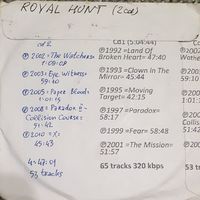 ROYAL HUNT (2cd)
cd 2
℗ 2002=The Watchers=
1:08:08
℗ 2003=Eye Witness=
59:10
℗ 2005=Paper Blood=
1:01:15
℗ 2008=Paradox II-
Collision Course=
51:42
℗ 2010=X=
45:43
4:47:01
53 tracks
cd1 (5:04:44)
℗1992 =Land Of
Broken Heart= 47:40
℗1993 =Clown In The
Mirror= 45:44
℗1995 =Moving
Target= 42:15
℗1997 =Paradox=
58:17
℗1999 =Fear= 58:48
℗2001 =The Mission=
51:57
65 tracks 320 kbps
cd2
℗200
Watche
℗200
59:10
℗200
1:01:
℗200
Collis
51:42
℗20
53 t